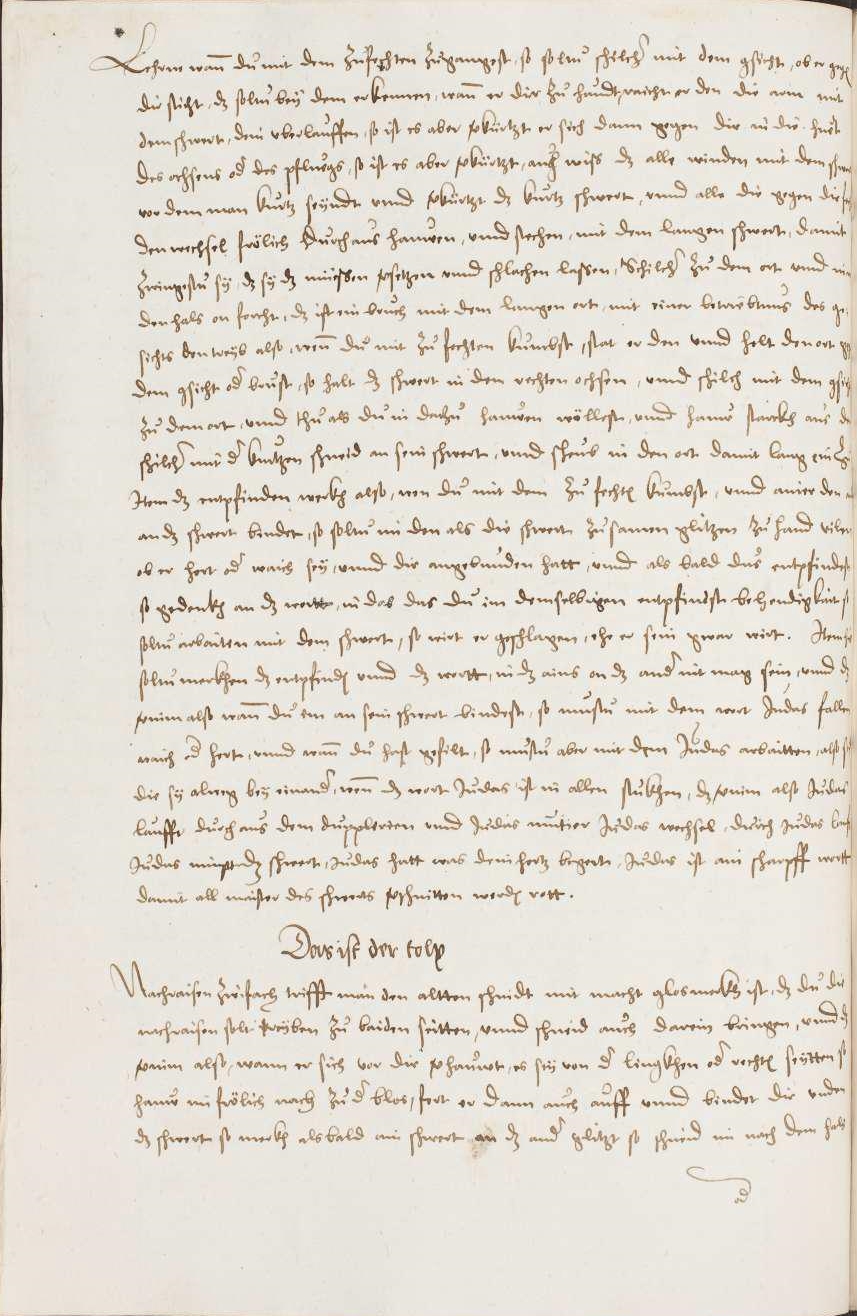 Lehrne wan̄ du mit dem Zufechten Zugangest, so soltu schilchē mit dem gsicht, ob er gegē
dir sticht, dz soltu bey dem erkennen, wan̄ er dir Zu haudt, raicht er den die arm mit
dem schwert, dem uberlauffen, so ist es aber vkürtzt er sich dann gegen dir in die huet
des ochsens od des pfluegs, so ist es aber vkürtzt, auch wiss dz alle winden mit dem schwert
vor dem man kurtz seyndt vnnd vkürtzt dz kurtz schwert, vnnd alle die gegen dir
den wechsel frölich durchaus hauwen, vnnd stechen, mit dem langen schwert, damit
Zwingestu sy, dz sy dz müessen vsetzen vnnd schlachen lassen, Schilch Zu dem ort vnnd nim
den hals on forcht, dz ist ein bruch mit dem langen ort, mit einer betriebtnus des ge
sichts den treyb also, wen̄ du mit Zu fechten kumbst, stat er den vnnd helt den ort
dem gsicht od brust, so halt dz schwert in den rechten ochsen, vnnd schilch mit dem gsicht
Zu dem ort, vnnd thu als du in darzu hauwen wöllest, vnnd hauw starckh aus dem
schilchē mit d kurtzen schneid an sein schwert, vnnd scheub in den ort damit lang ein
Item dz entpfinden merkh also, wen du mit dem Zu fechtē kumbst, vnnd ainer den
an dz schwert bindet, so soltu in den als die schwert Zusamen glitzen Zu hand
ob er hert od waich sey, vnnd dir angebunden hatt, vnnd als bald dus entpfindest
so gedenkh an dz wortt, in das das du im demselbigen entpfindst behendigkait
soltu arbaiten mit dem schwert, so wirt er geschlagen, ehe er sein gwar wirt. Item
soltu merckhen dz entpfindē vnnd dz wortt, in dz ains on dz and nit mag sein, vnnd dz
vnim also wan̄ du im an sein schwert bindest, so mustu mit dem wort Judas fallen
waich od hert, vnnd wan̄ du hast gefilt, so mustu aber mit dem Judas arbaitten, also
die sy alweg bey einand, wen̄ dz wort Judas ist in allen stukhen, dz vnim also Judas
laufft durchaus dem dupplerien vnnd Judas mutier Judas wechsel, durch Judas lauf
Judas nimpt dz schwert, Judas hatt was dein hertz begert, Judas ist ain scharpff wortt
damit all maister des schwerts vschnitten werdē rott.
Das ist der tolp
Nachraisen Zwifach trifft man den altten schnidt mit macht glos merkh ist, dz du die
nachraisen solt treyben Zu baiden seitten, vnnd schneid auch darein bringen, vnnd dz
vnim also, wann er sich vor dir vhauwt, es sey von d lingkhen od rechtē seytten so
hauw im frölich nach Zu d blos, fert er dann auch auff vnnd bindet dir vnden
dz schwert so merkh alsbald ain schwert an dz and glitzt so schneid im nach dem hals
od